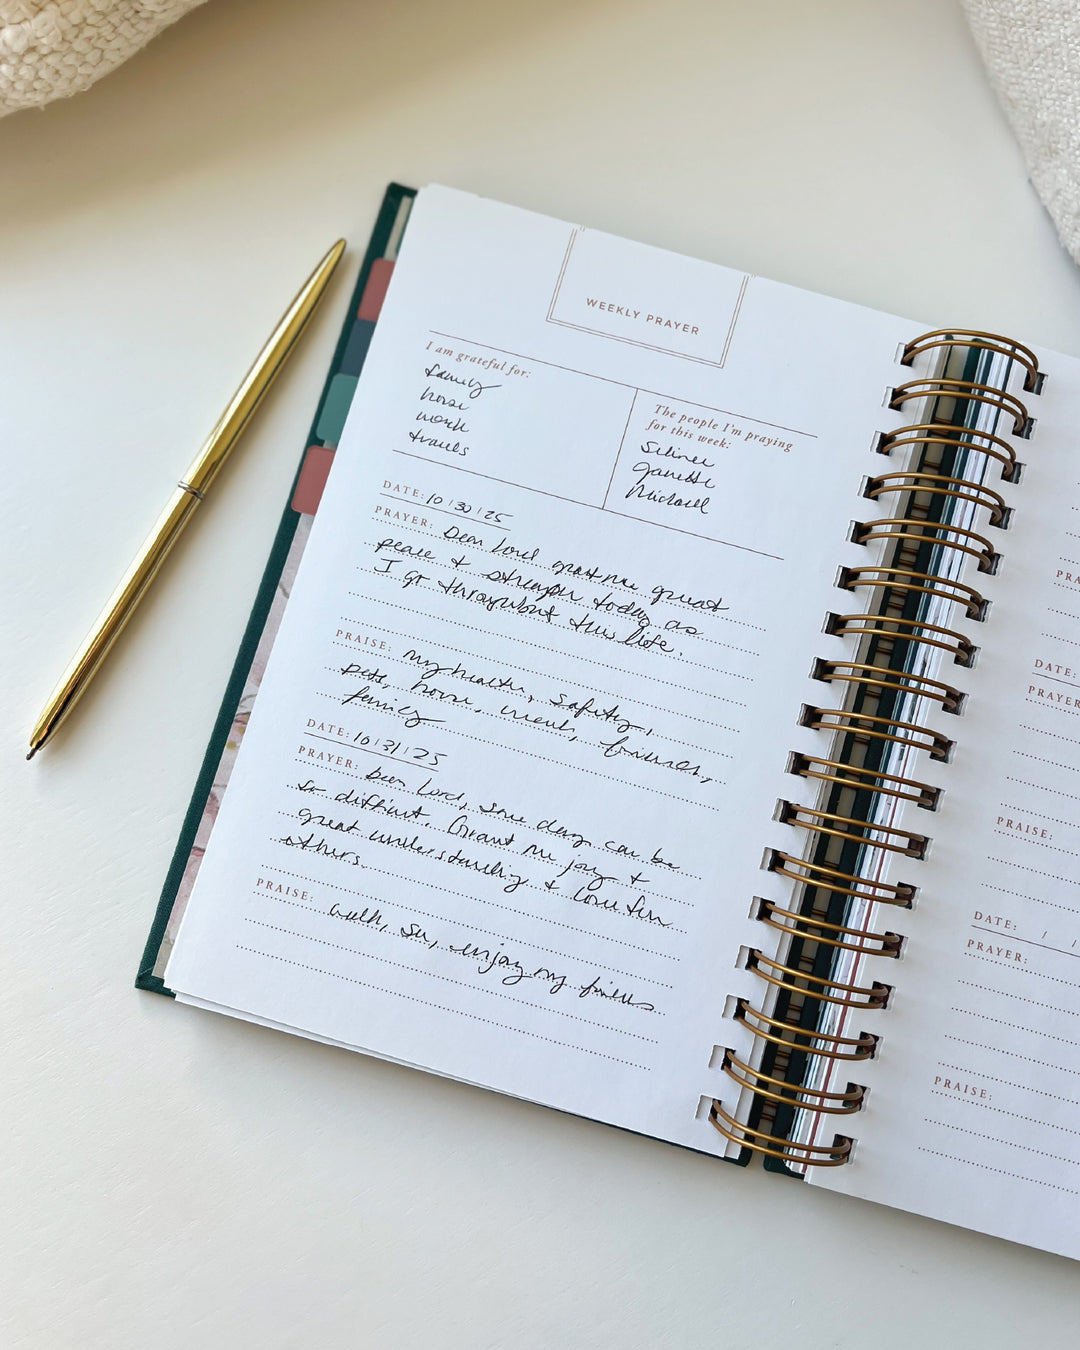 WEEKLY PRAYER
I am grateful for:
family
home
work
travels
The people I'm praying
for this week:
Janette
Michael
DATE: 10/30/25
PRAYER: Dear Lord grant me great
peace & strength today as
I go throughout this life.
PRAISE: my health, safety,
pets, home, friends,
family
DATE: 10/31/25
PRAYER: Dear Lord, some days can be
so difficult. Grant me joy &
great understanding & love for
others.
PRAISE: walk, enjoy my friends
PRA
DATE:
PRAYER
PRAISE:
DATE: / /
PRAYER:
PRAISE: